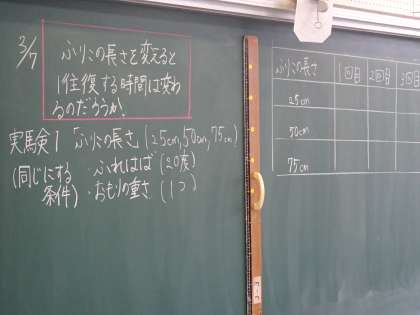 3/7
ふりこの長さを変えると
1往復する時間は変わ
るのだろうか。
実験1 「ふりこの長さ」(25cm,50cm,75cm)
(同じにする ・ふれはば (20度)
条件) ・おもりの重さ (1つ)
ふりこの長さ 1回目 2回目 3回目
25cm
50cm
75cm